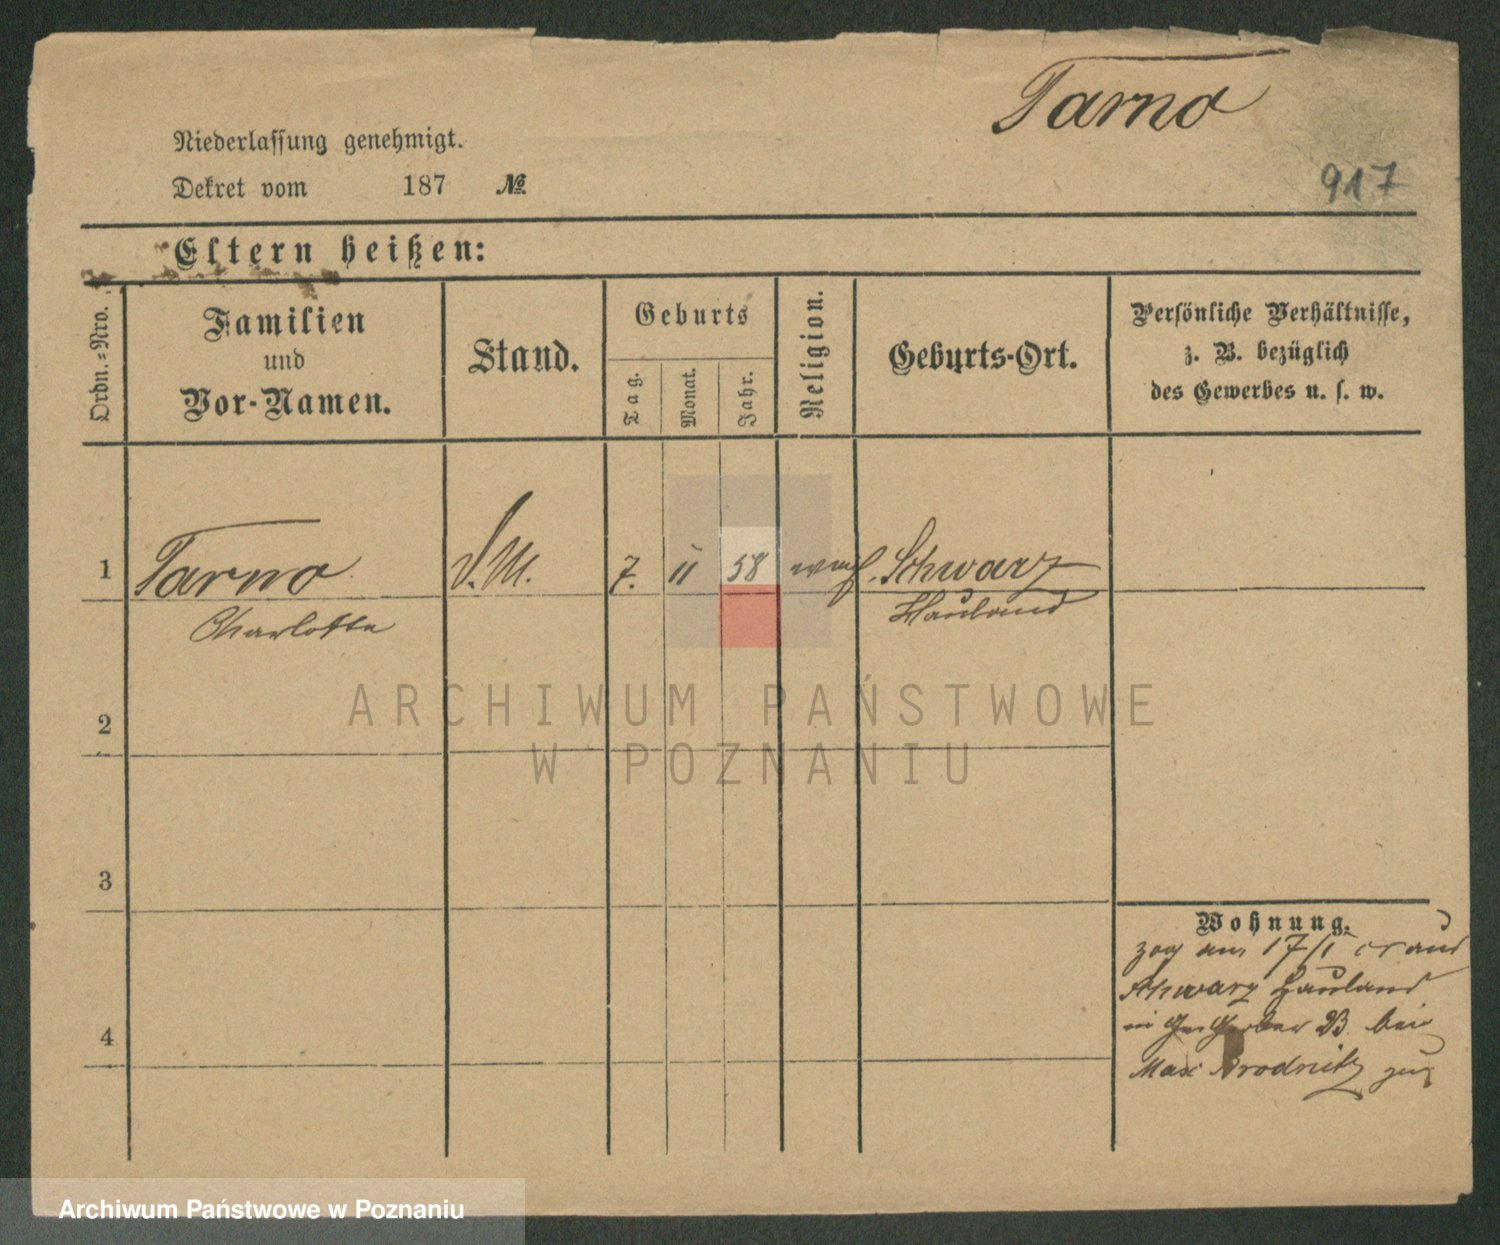 Tarno
917
Niederlassung genehmigt.
Dekret vom 187 №
Eltern heißen:
Ordn.-Nro.
Familien
und
Vor-Namen.
Stand.
Geburts
Tag.
Monat.
Jahr.
Religion.
Geburts-Ort.
Persönliche Verhältnisse,
z. B. bezüglich
des Gewerbes u. s. w.
1 Tarno D.M. 7. 11 58 Schwarz
Charlotte Hauland
2
3
4
Wohnung.
zog am 17/1 cr aus
Schwarz Hauland
Gerber B. bei
Max Brodnitz zu
ARCHIWUM PAŃSTWOWE
W POZNANIU
Archiwum Państwowe w Poznaniu